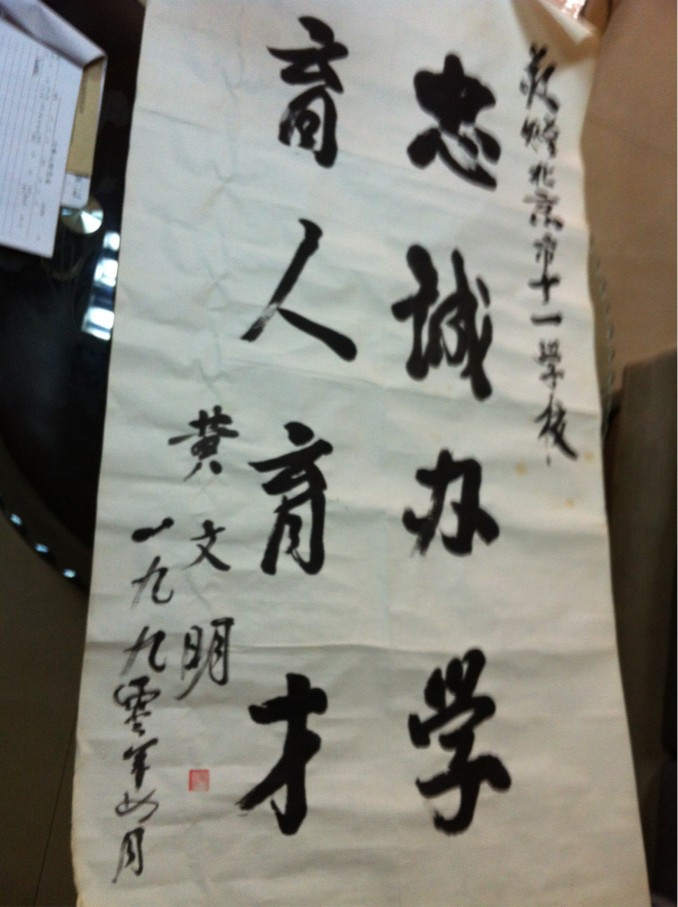 敬赠北京市十一学校
忠诚办学
育人育才
黄文明
一九九零年月